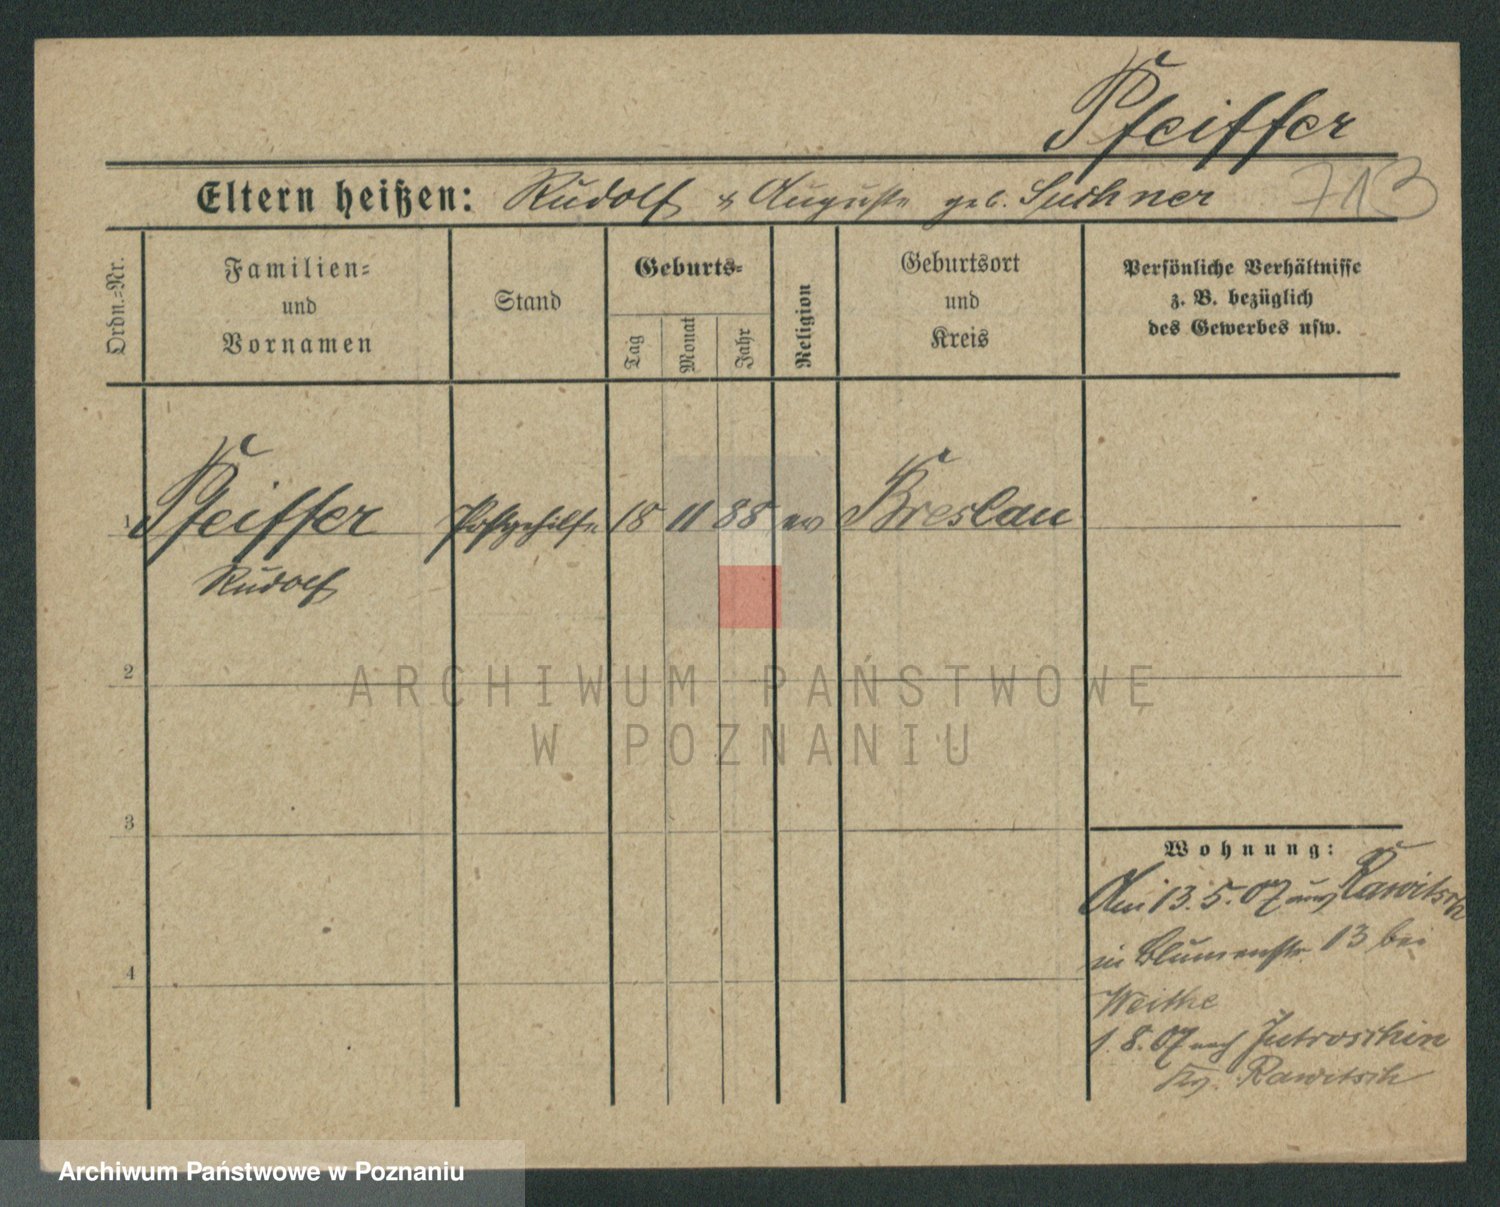 Pfeiffer
Eltern heißen: Rudolf & Auguste geb. 713
Ordn.=Nr.
Familien=
und
Vornamen
Stand
Geburts=
Tag
Monat
Jahr
Religion
Geburtsort
und
Kreis
Persönliche Verhältnisse
z. B. bezüglich
des Gewerbes usw.
1 Pfeiffer Postgehilfe 18 11 88 ev Breslau
Rudolf
2
ARCHIWUM PAŃSTWOWE
W POZNANIU
3
Wohnung:
Am 13.5.07 aus Rawitsch
in Blumenstr. 13 bei
Weithe
1.8.07 nach Jutroschin
Krs. Rawitsch
4
Archiwum Państwowe w Poznaniu